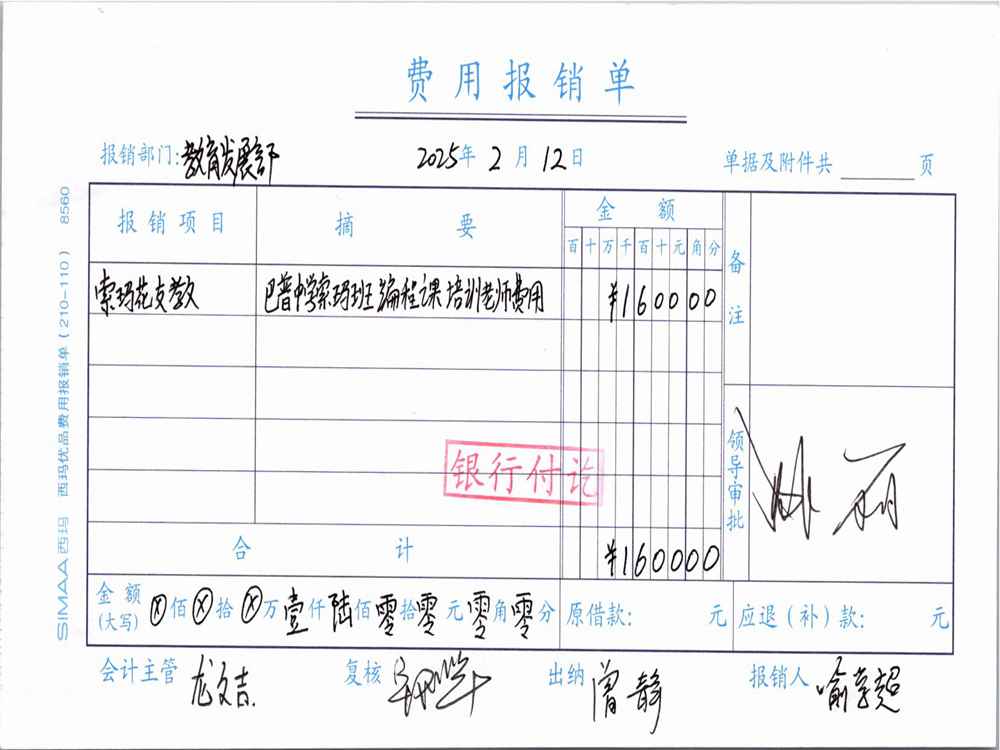 费用报销单
报销部门：教育发展部 2025年 2月 12日 单据及附件共 页
报销项目 摘要 金额 备注
百 十 万 千 百 十 元 角 分
索玛花支教 巴普中学索玛班编程课培训老师费用 ¥160000
银行付讫
领导审批
合计 ¥160000
金额(大写) ⓧ佰ⓧ拾ⓧ万壹仟陆佰零拾零元零角零分 原借款： 元 应退（补）款： 元
会计主管 龙文吉 复核 出纳 曾静 报销人 喻享超
SIMAA西玛 西玛优品费用报销单（210-110） 8560